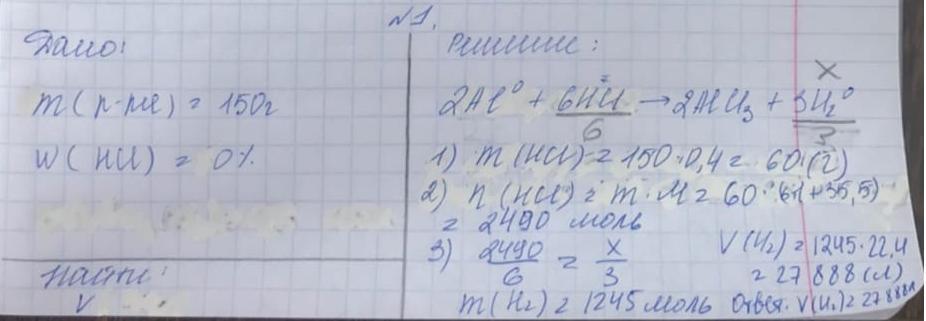 №1.
Дано:
m(р-ра) = 150г
w(HCl) = 0%
Найти:
V
Решение:
x
2Al⁰ + 6HCl → 2AlCl₃ + 3H₂⁰
6 3
1) m(HCl) = 150·0,4 = 60(г)
2) n(HCl) = m·M = 60·(1+35,5)
= 2490 моль
3) 2490/6 = x/3
m(H₂) = 1245 моль
V(H₂) = 1245·22,4
= 27888(л)
Ответ: V(H₂) = 27888л